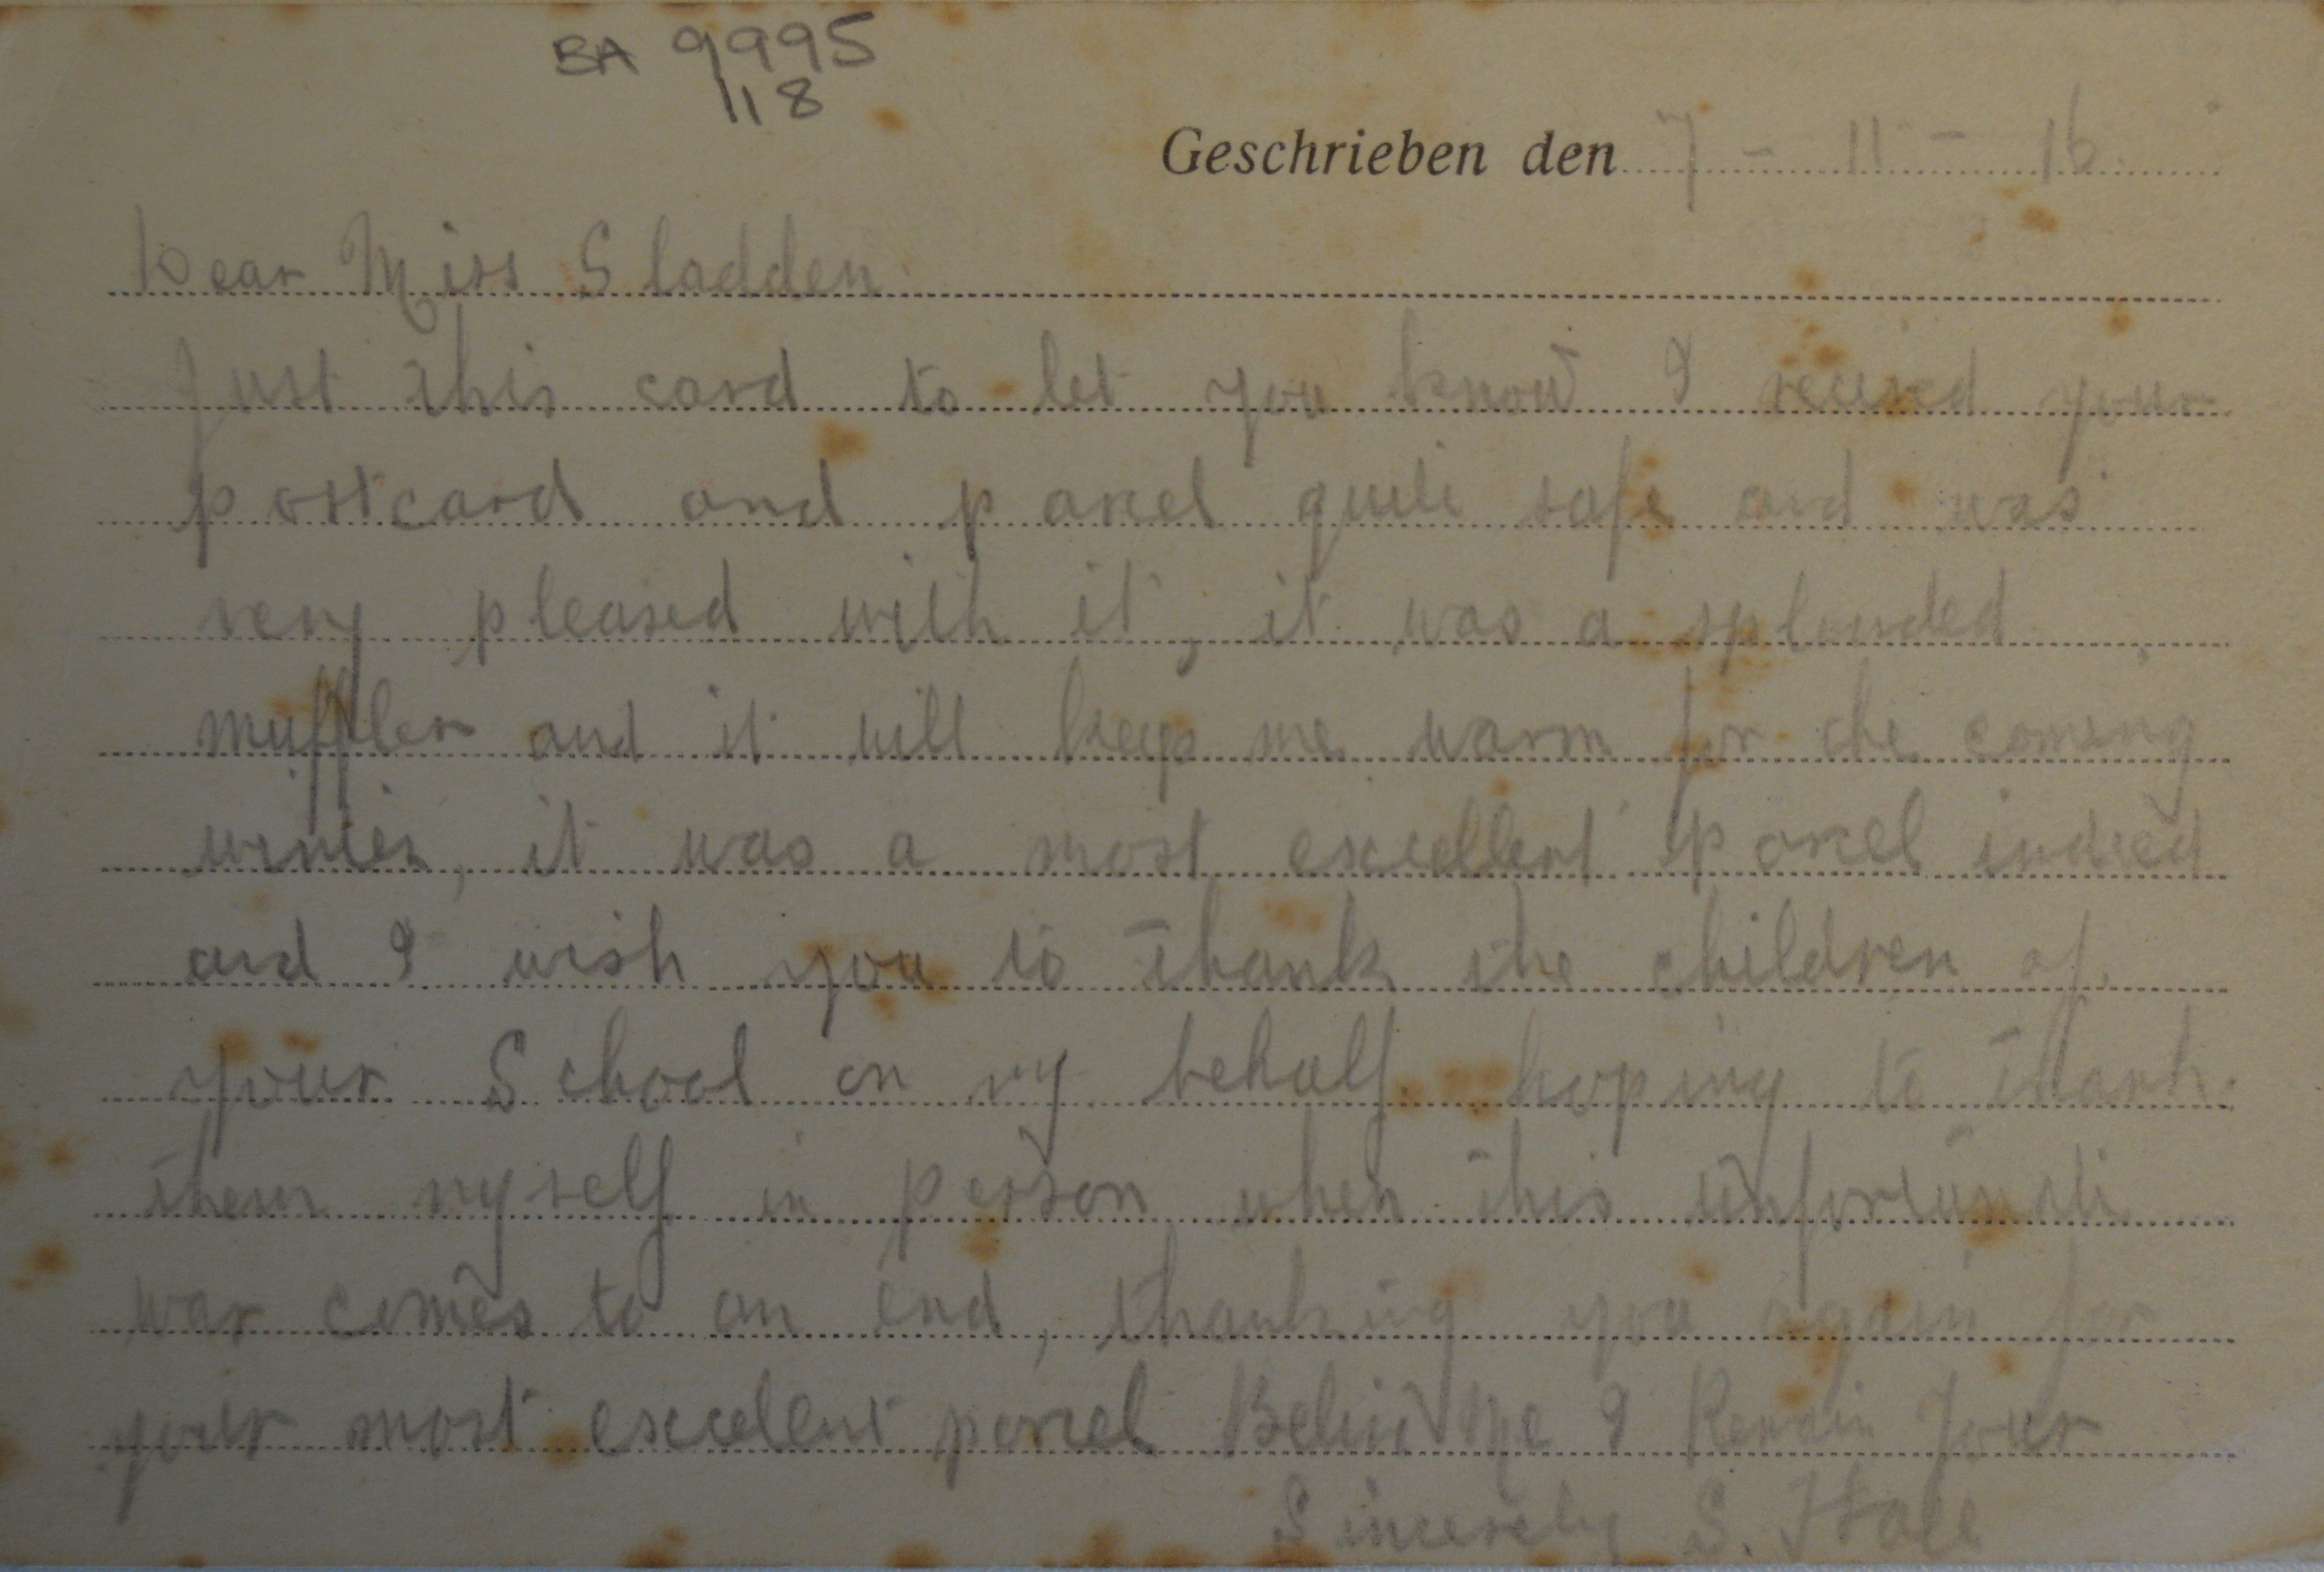 BA 9995
118
Geschrieben den 7 - 11 - 16
Dear Miss Sladden
Just this card to let you know I recived your
postcard and parcel quite safe and was
very pleased with it, it was a splended
muffler and it will keep me warm for the coming
winter, it was a most excellent parcel indeed
and I wish you to thank the children of
your School on my behalf hoping to thank
them myself in person when this unfortunate
war comes to an end, thanking you again for
your most excelent parcel Believe Me I Remain Your
Sincerely S. Hall